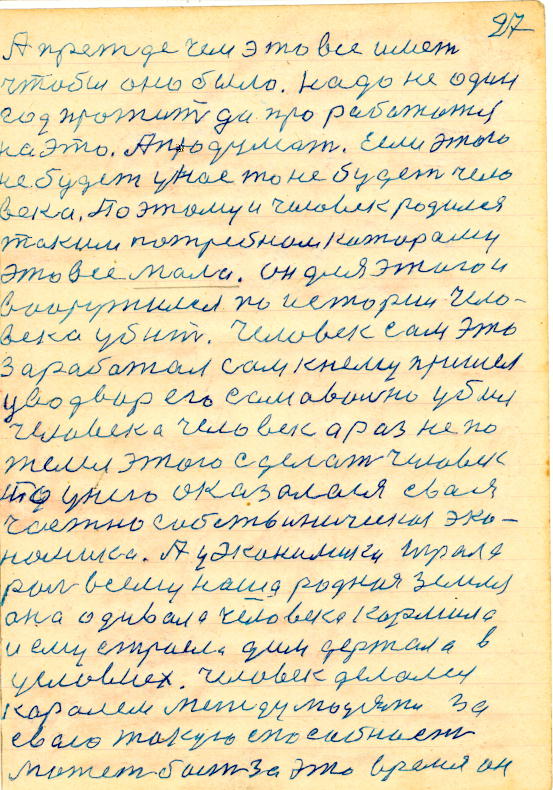 27
А прежде чем это все имет
чтобы оно было. надо не один
год прожит да про работатся
на это. А продумат. Если этого
не будет у нас то не будет чело
века. Поэтому и человек родился
таким потребном каторому
это все мала. он для этого и
вооружился по истории чело-
века убит. Человек сам это
заработал сам к нему пришел
у во двор его самовольно убил
человека человек а раз не по
желел этого сделат человек
то у него оказалася своя
частно собственическая эко-
номика. А у экономики играла
рол всему наша родная земля
она одивала человека кормила
и ему строела дом держала в
условиех. Человек делался
каралем между людями за
сваю такую способност
может быт за это время он